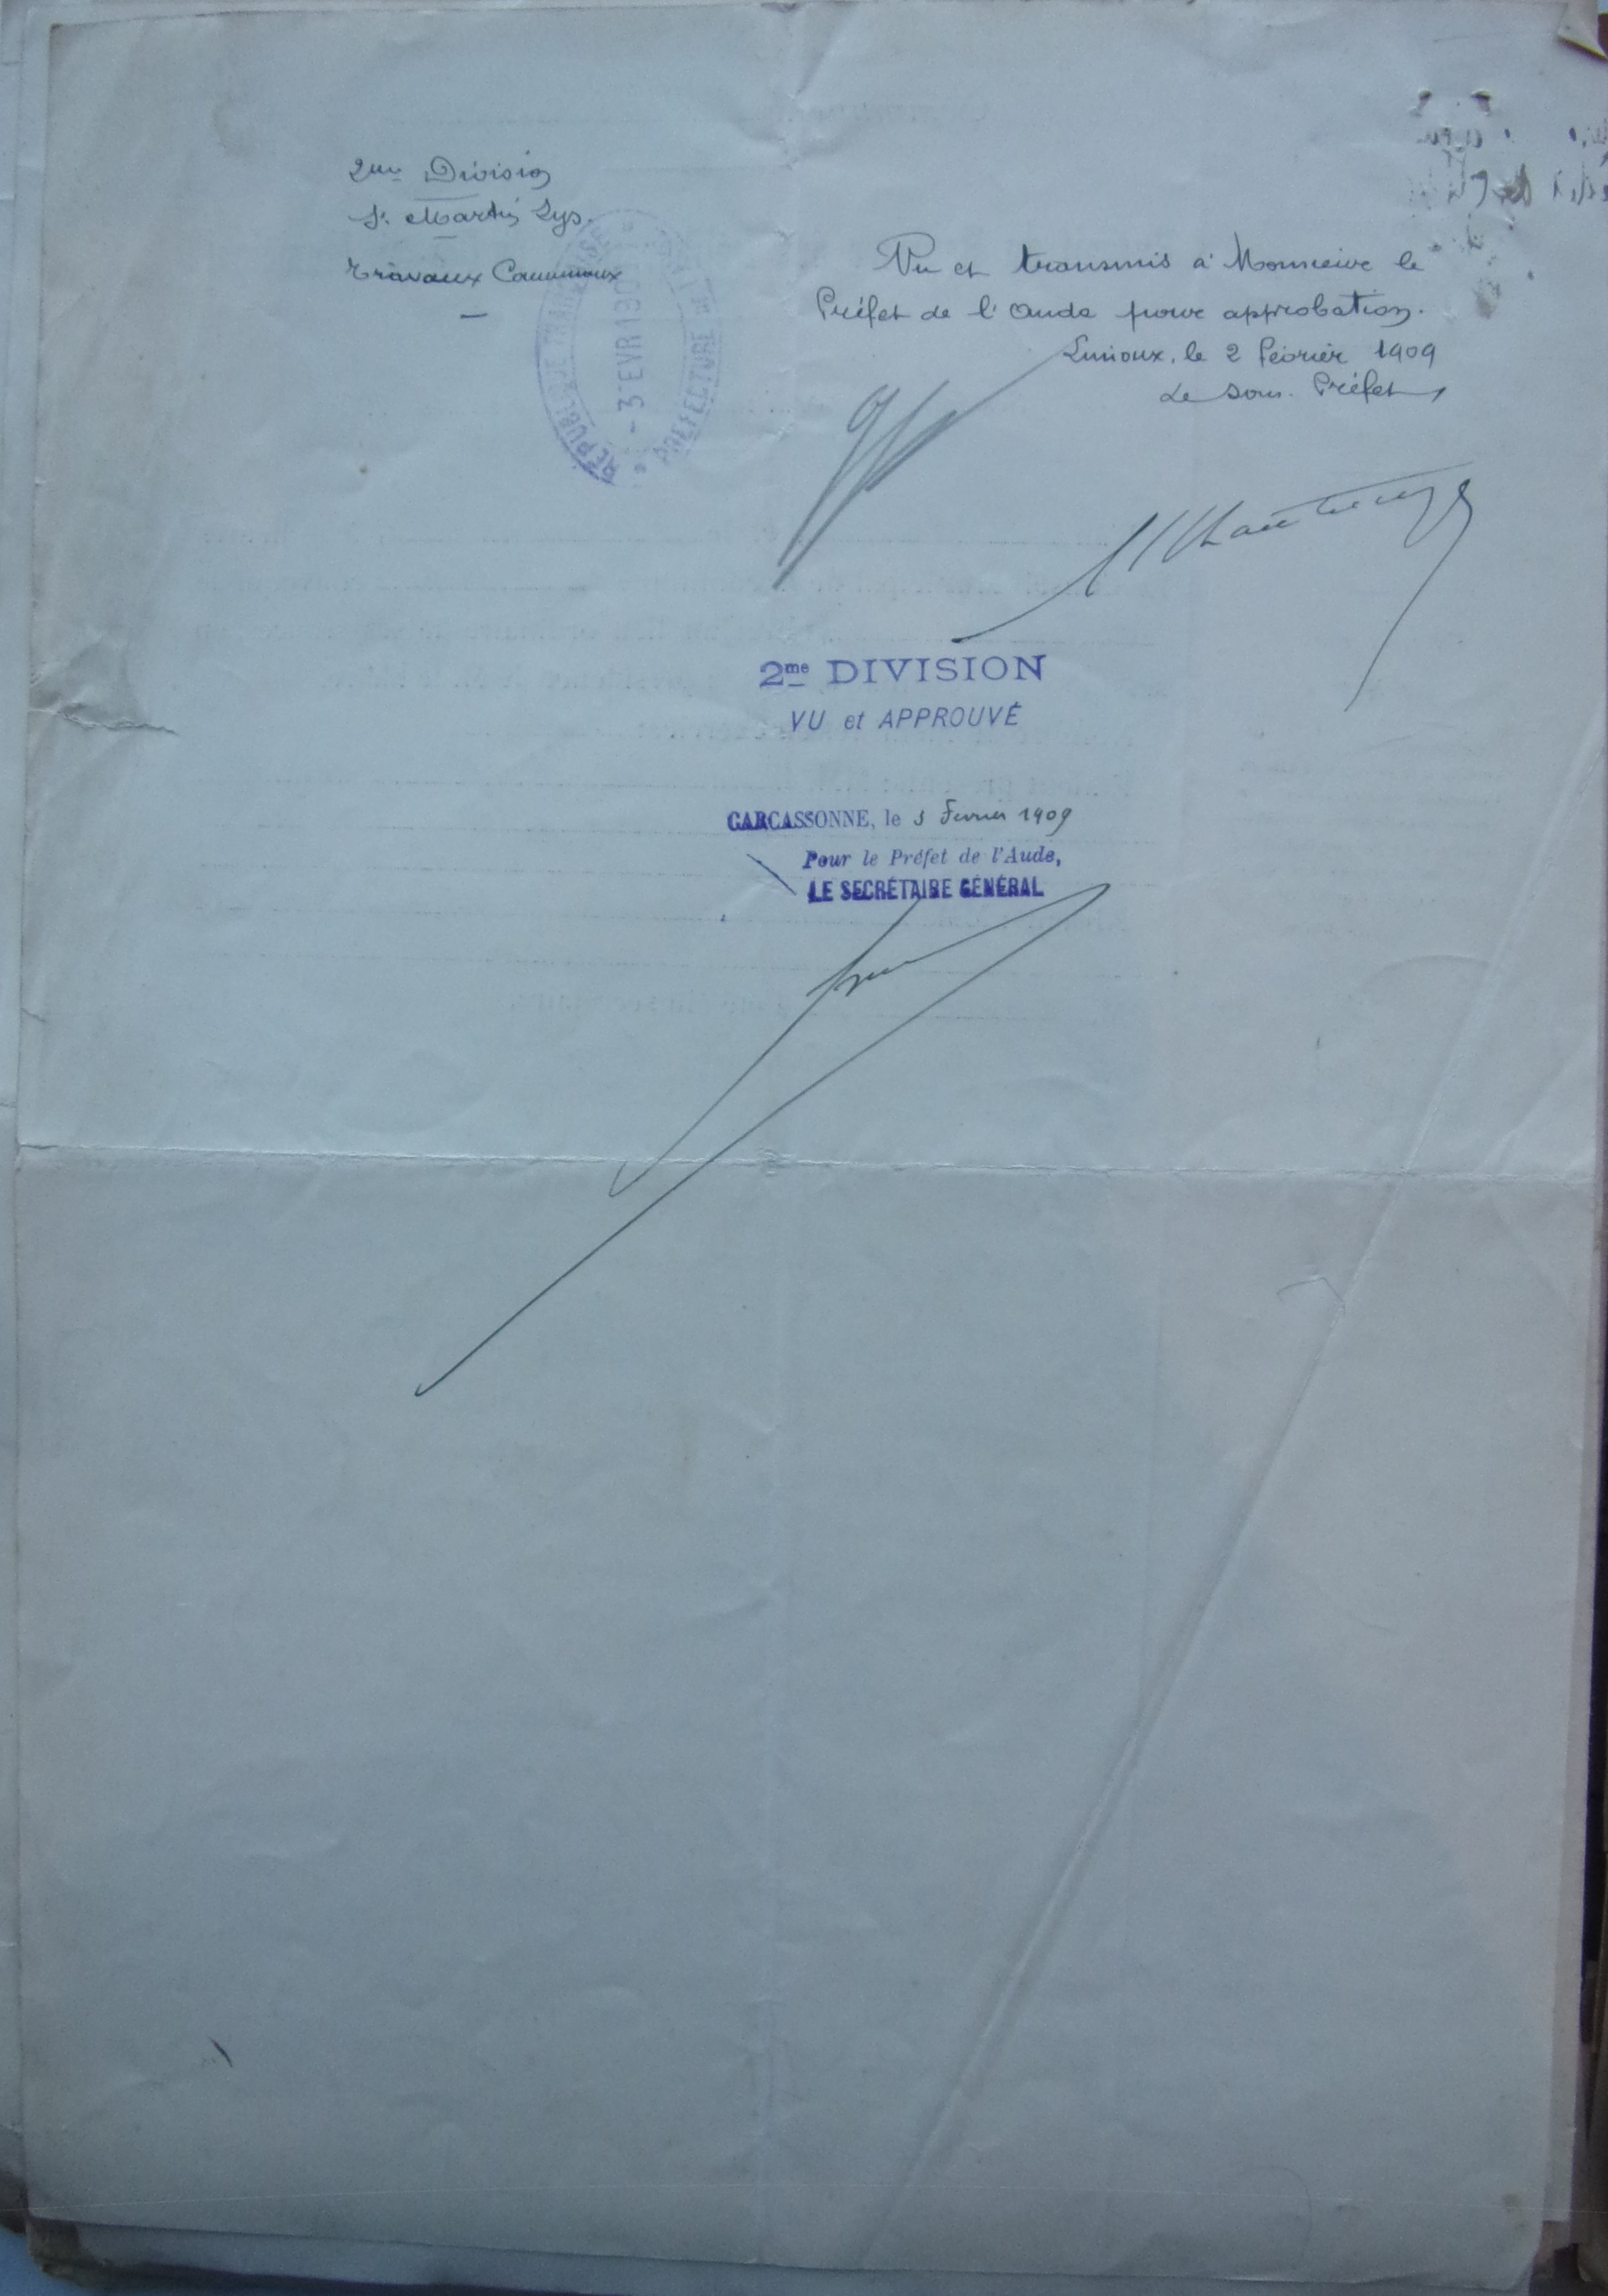 2me Division
St Martin Lys.
Travaux Communaux
RÉPUBLIQUE FRANÇAISE
- 3 FEVR 190
PREFECTURE
Vu et transmis à Monsieur le
Préfet de l'Aude pour approbation.
Limoux, le 2 Février 1909
Le Sous-Préfet,
2me DIVISION
VU et APPROUVÉ
CARCASSONNE, le 3 Fevrier 1909
Pour le Préfet de l'Aude,
LE SECRÉTAIRE GÉNÉRAL